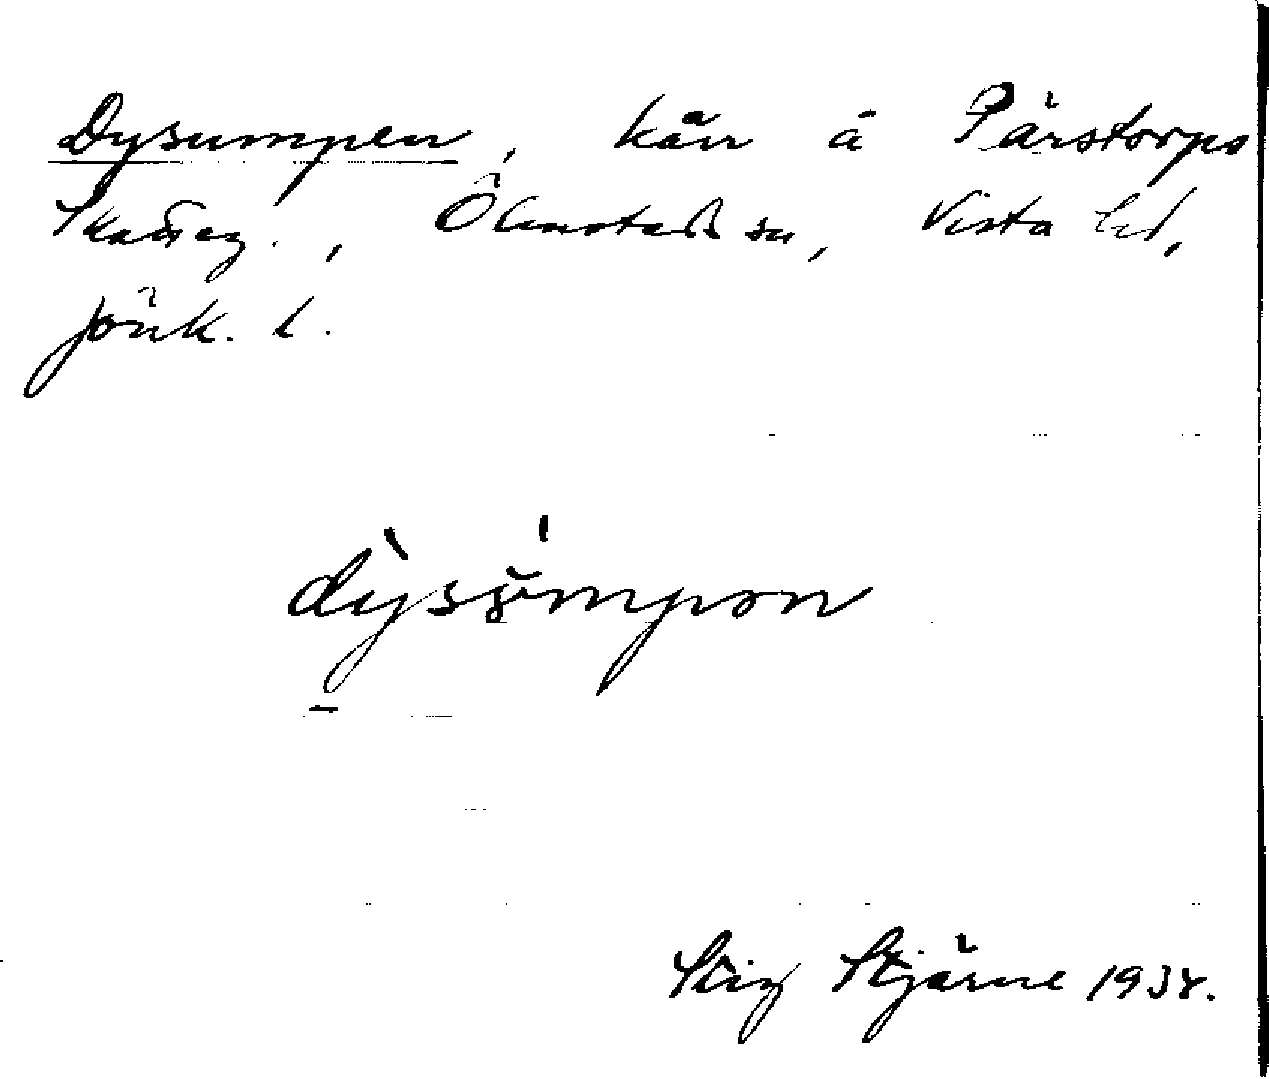 Dysumpen, kärr å Pärstorps
Skatteg., Ölmstads sn, Vista hd,
Jönk. l.
dỳsv̆mpən
Stig Stjärne 1938.